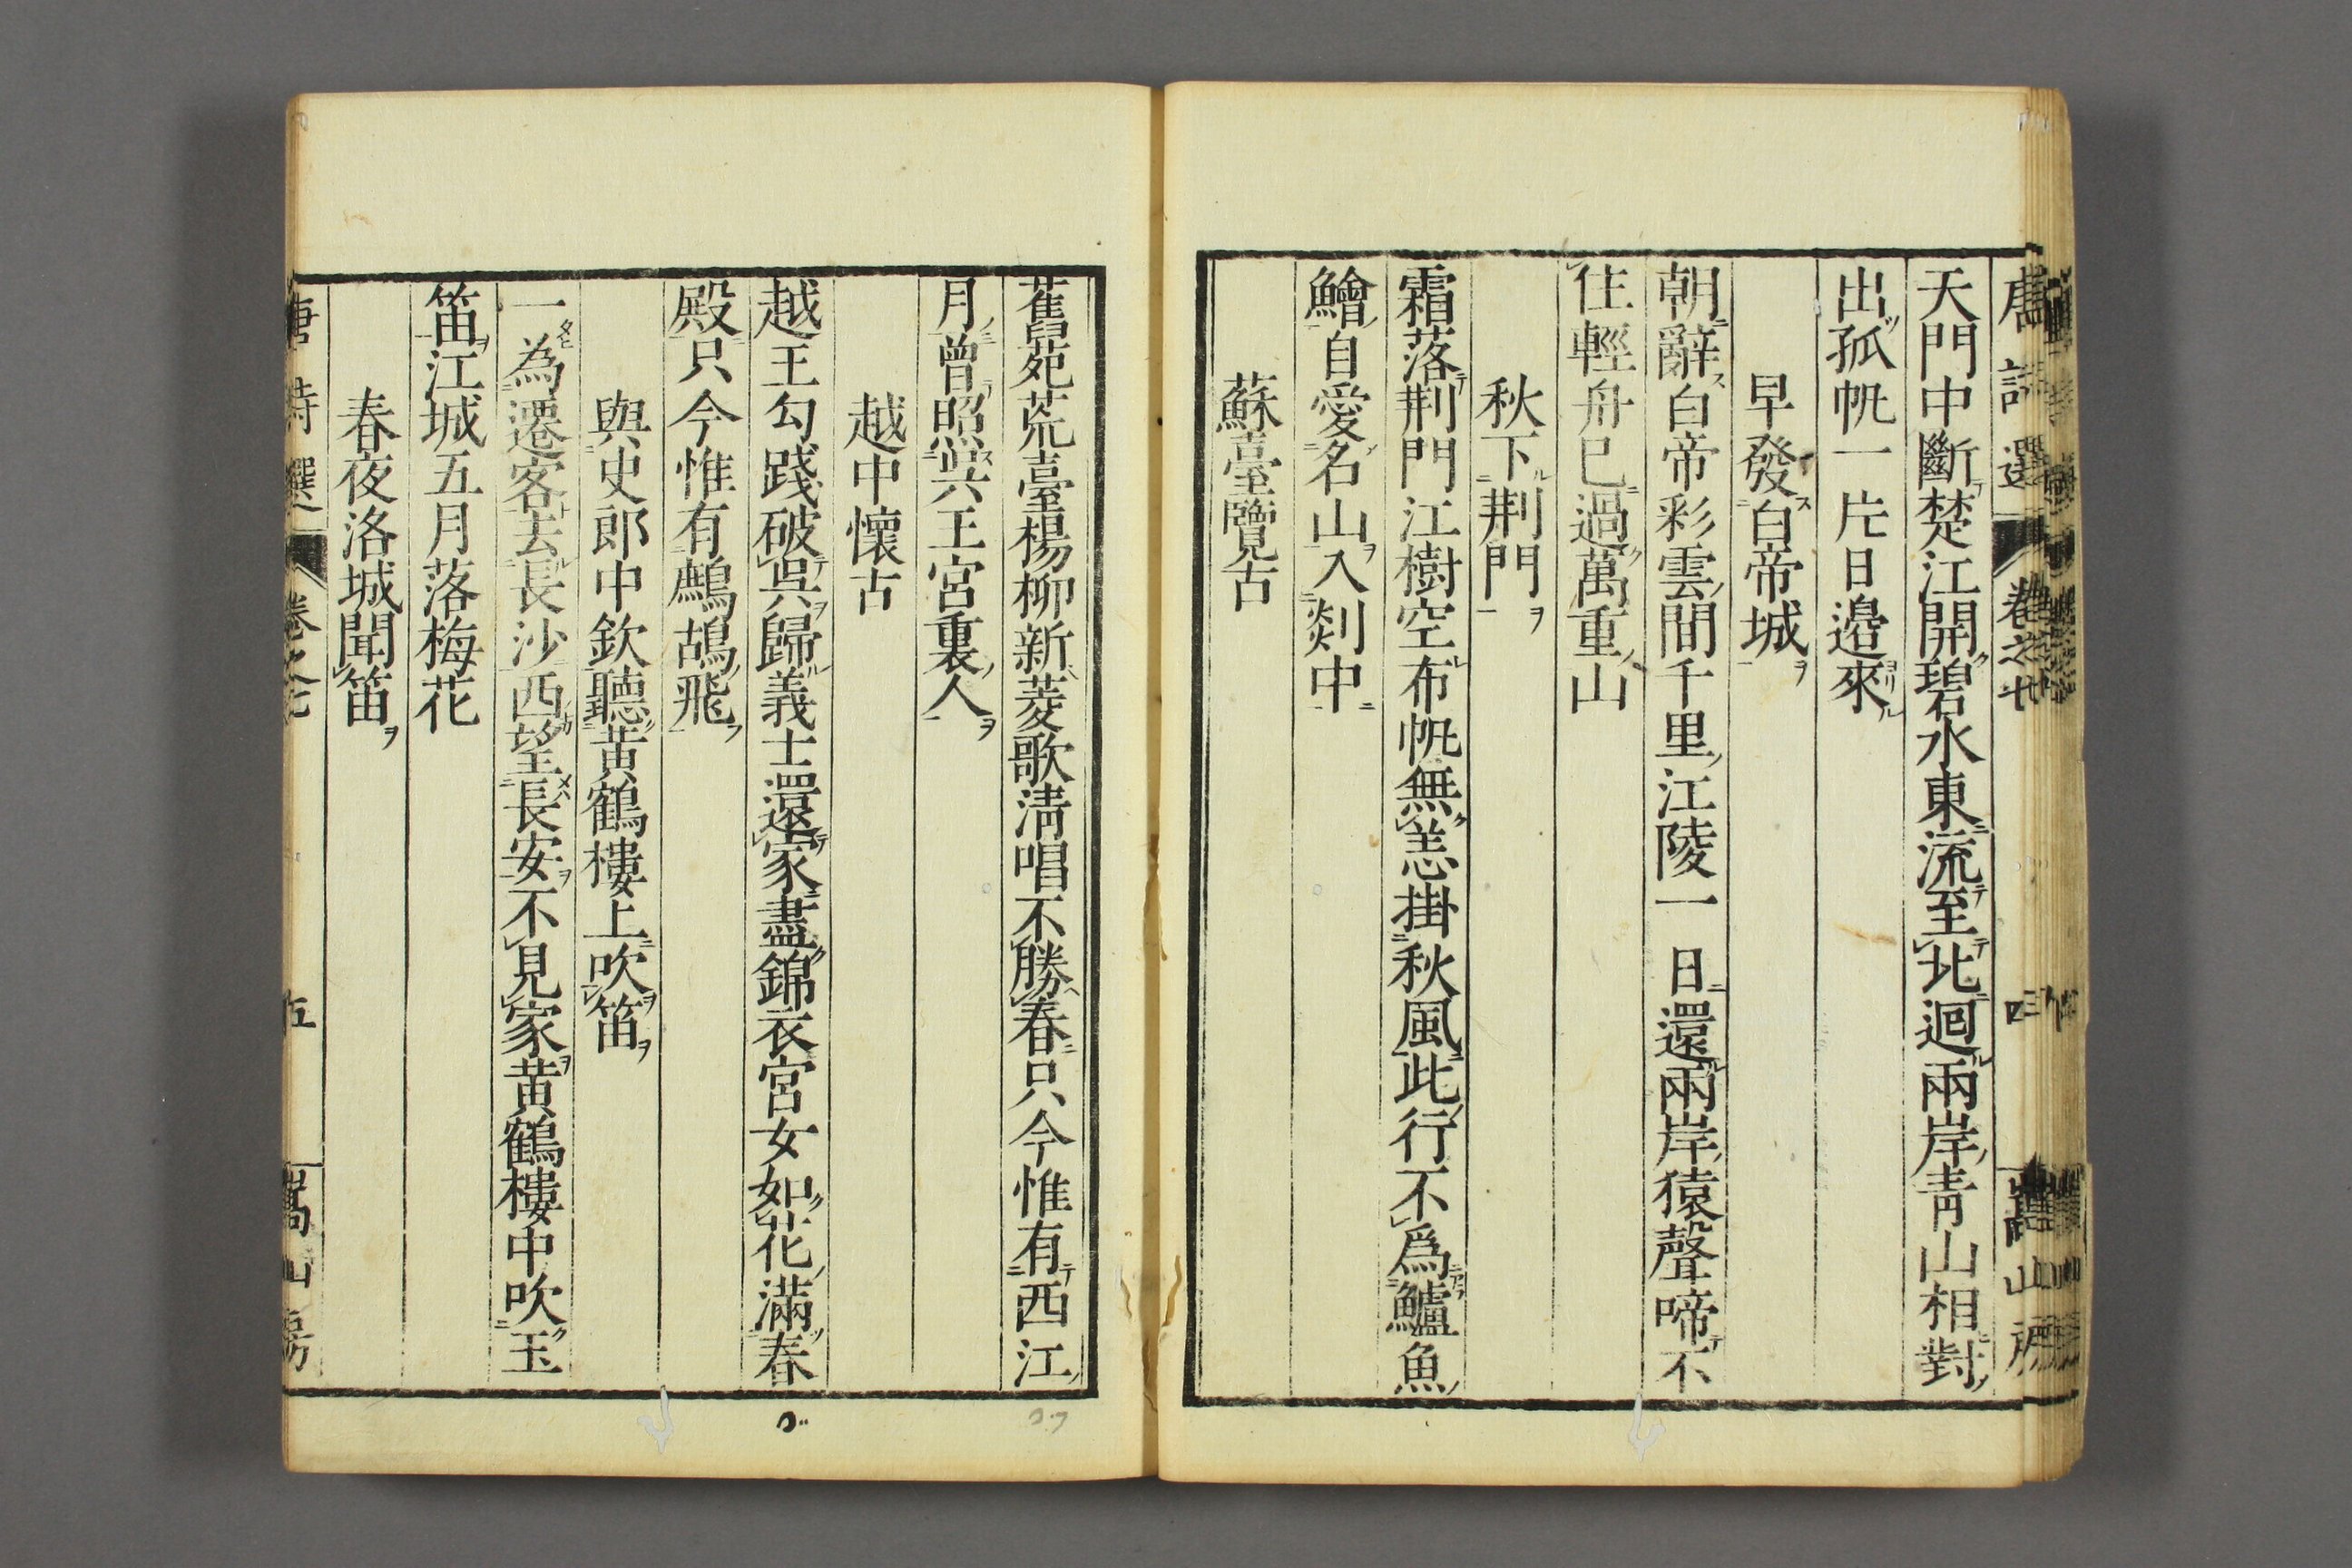 唐詩選 卷之七 四 嵩山房
天門中斷楚江開碧水東流至北迴兩岸青山相對
出孤帆一片日邊來
早發白帝城
朝辭白帝彩雲間千里江陵一日還兩岸猿聲啼不
住輕舟已過萬重山
秋下荆門
霜落荆門江樹空布帆無恙掛秋風此行不爲鱸魚
鱠自愛名山入剡中
蘇臺覽古
舊苑荒臺楊柳新菱歌淸唱不勝春只今惟有西江
月曾照吳王宮裏人
越中懷古
越王勾踐破吳歸義士還家盡錦衣宮女如花滿春
殿只今惟有鷓鴣飛
與史郎中欽聽黄鶴樓上吹笛
一為遷客去長沙西望長安不見家黄鶴樓中吹玉
笛江城五月落梅花
春夜洛城聞笛
唐詩選 卷之七 五 嵩山房